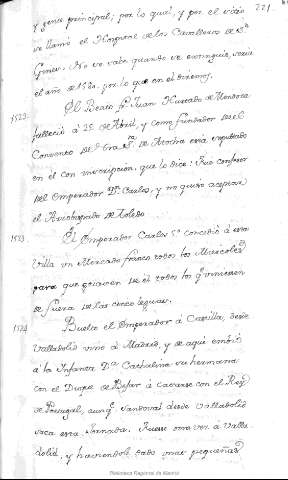 221
y gente principal; por lo qual, y por el sitio
se llamó el Hospital de los Cavalleros de Sn.
Gines. No se sabe quando se extinguio, sería
el año de 1520. por lo que en el diremos.
1523. El Beato Fr. Juan Hurtado de Mendoza
falleció á 25 de Abril, y como fundador de el
Convento de Ntra. Sra. de Atocha está sepultado
en el con inscripcion, que lo dice: Fue confesor
del Emperador Dn. Carlos, y no quiso aceptar
el Arzobispado de Toledo
1523 El Emperador Carlos 5º concedió á esta
Villa un Mercado franco todos los Miercoles
para que gozacen de él todos los q. vinieren
de fuera de las cinco leguas.
1524 Buelto el Emperador á Castilla, desde
Valladolid vino á Madrid, y de aqui embió
á la Infanta Da. Cathalina su hermana
con el Duque de Bejar á casarse con el Rey
de Portugal, aunq. Sandoval desde Valladolid
saca esta Jornada. Fuese otra vez á Valla-
dolid, y haviendole dado unas pequeñas
Biblioteca Regional de Madrid